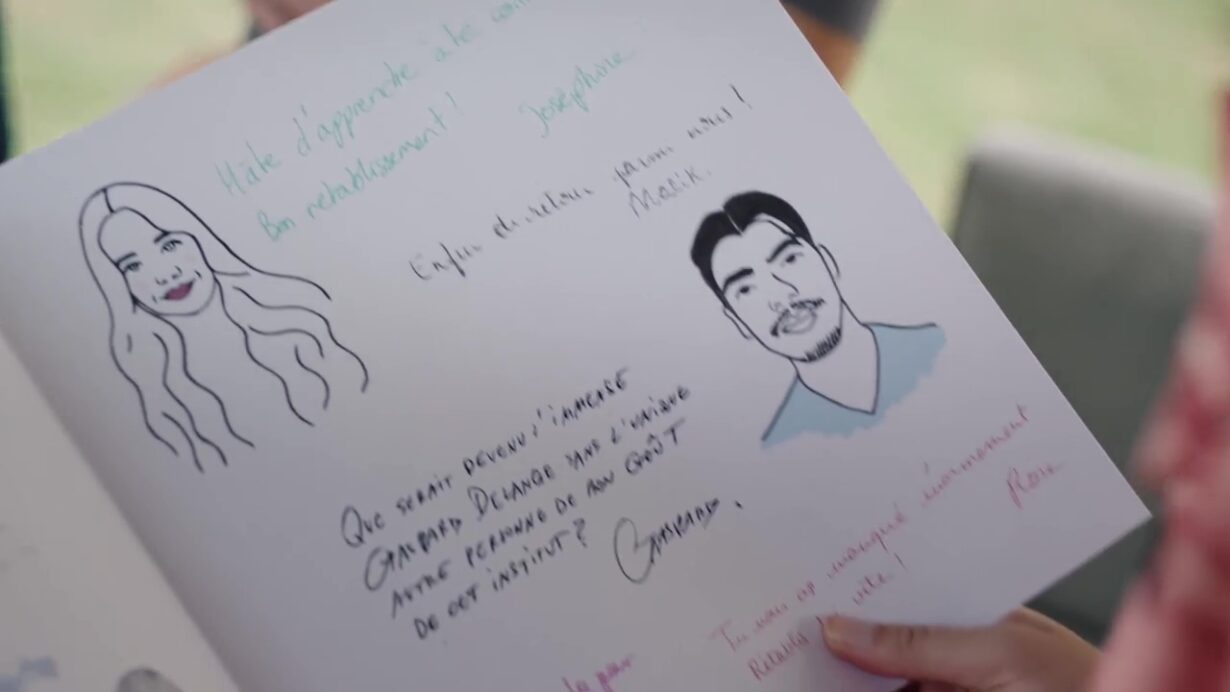 Hâte d'apprendre à te
Bon rétablissement !
Joséphine
Enfin de retour parmi nous !
Malik.
QUE SERAIT DEVENU L'IMMENSE
GASPARD DELANGE SANS L'UNIQUE
AUTRE PERSONNE DE BON GOÛT
DE CET INSTITUT ?
GASPARD.
Tu nous as manqué énormément
Rétablis vite !
Rose